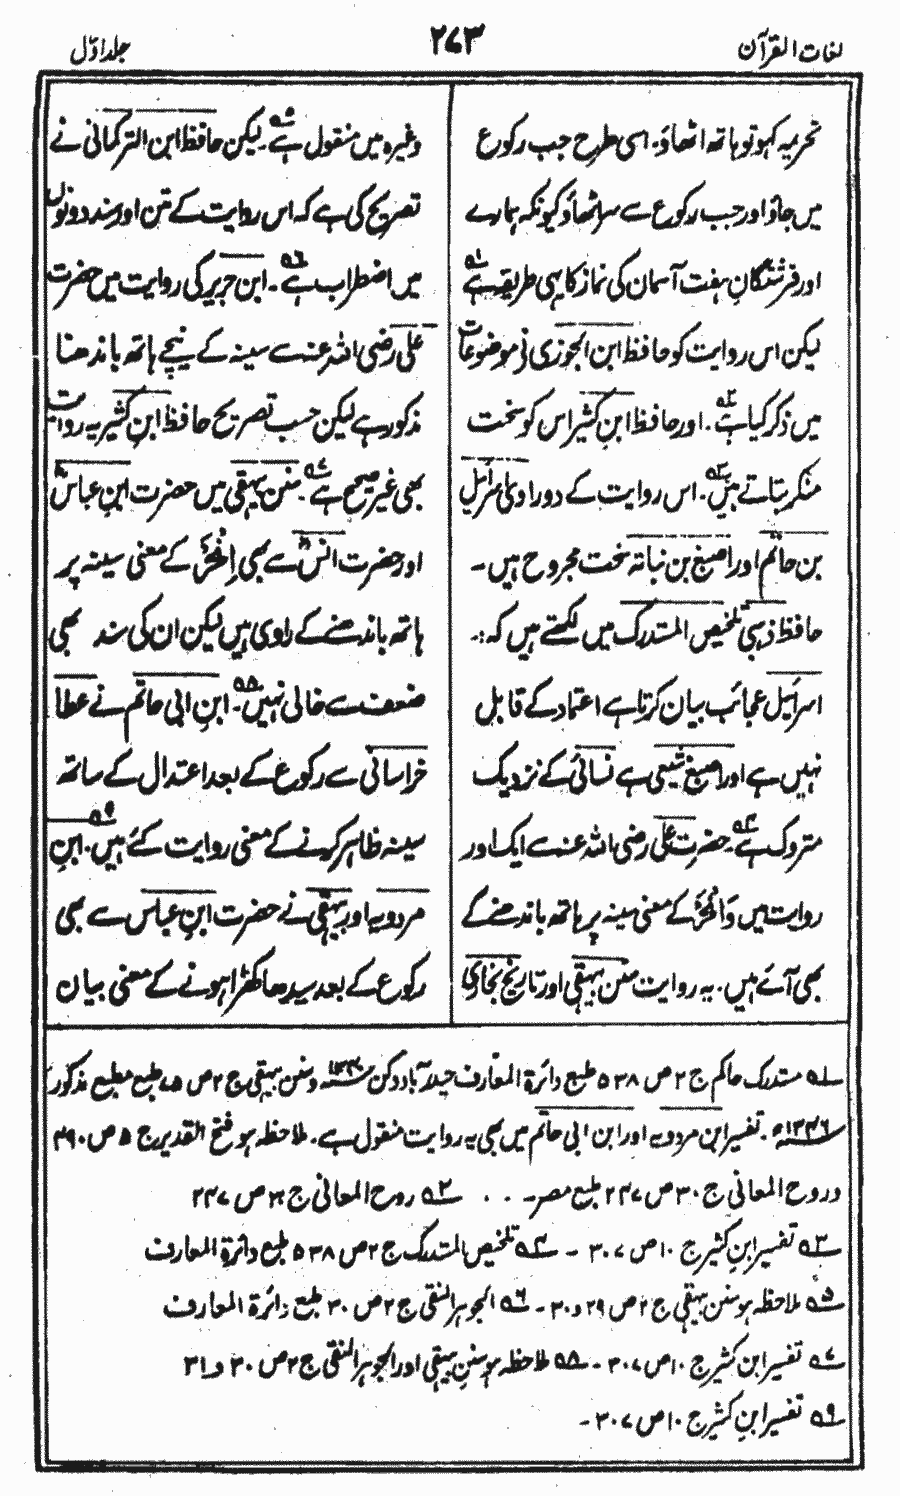 لغات القرآن
۲۷۳
جلد اوّل
تحریمہ کہو تو ہاتھ اٹھاؤ۔ اسی طرح جب رکوع
میں جاؤ اور جب رکوع سے سر اٹھاؤ کیونکہ ہمارے
اور فرشتگانِ ہفت آسمان کی نماز کا یہی طریقہ ہے ۱؎
لیکن اس روایت کو حافظ ابن الجوزی نے موضوعات
میں ذکر کیا ہے ۲؎۔ اور حافظ ابنِ کثیر اس کو سخت
منکر بتاتے ہیں ۳؎۔ اس روایت کے دو راوی اسرائیل
بن حاتم اور اصبغ بن نباتہ سخت مجروح ہیں۔
حافظ ذہبی تلخیص المستدرک میں لکھتے ہیں کہ:۔
اسرائیل عجائب بیان کرتا ہے اعتماد کے قابل
نہیں ہے اور اصبغ شیعی ہے نسائی کے نزدیک
متروک ہے ۴؎۔ حضرت علی رضی اللہ عنہ سے ایک اور
روایت میں وَانْحَرْ کے معنی سینہ پر ہاتھ باندھنے کے
بھی آئے ہیں۔ یہ روایت سنن بیہقی اور تاریخ بخاری
وغیرہ میں منقول ہے ۵؎۔ لیکن حافظ ابن الترکمانی نے
تصریح کی ہے کہ اس روایت کے متن اور سند دونوں
میں اضطراب ہے ۶؎۔ ابن جریر کی روایت میں حضرت
علی رضی اللہ عنہ سے سینہ کے نیچے ہاتھ باندھنا
مذکور ہے لیکن حسب تصریح حافظ ابنِ کثیر یہ روایت
بھی غیر صحیح ہے ۷؎۔ سنن بیہقی میں حضرت ابنِ عباسؓ
اور حضرت انسؓ سے بھی اِنْحَرْ کے معنی سینہ پر
ہاتھ باندھنے کے راوی ہیں لیکن ان کی سند بھی
ضعف سے خالی نہیں ۸؎۔ ابنِ ابی حاتم نے عطا
خراسانی سے رکوع کے بعد اعتدال کے ساتھ
سینہ ظاہر کرنے کے معنی روایت کئے ہیں ۹؎۔ ابنِ
مردویہ اور بیہقی نے حضرت ابنِ عباس سے بھی
رکوع کے بعد سیدھا کھڑا ہونے کے معنی بیان
۱؎ مستدرک حاکم ج ۲ ص ۵۳۸ طبع دائرۃ المعارف حیدرآباد دکن ۱۳۴۰ھ و سنن بیہقی ج ۲ ص ۷۵ طبع مطبع مذکور
۱۳۴۶ھ۔ تفسیر ابن مردویہ اور ابن ابی حاتم میں بھی یہ روایت منقول ہے۔ ملاحظہ ہو فتح القدیر ج ۵ ص ۴۹۰
و روح المعانی ج ۳۰ ص ۲۴۷ طبع مصر۔ ۔ ۔ ۲؎ روح المعانی ج ۳۰ ص ۲۴۷
۳؎ تفسیر ابن کثیر ج ۱۰ ص ۳۰۷ ۔ ۴؎ تلخیص المستدرک ج ۲ ص ۵۳۸ طبع دائرۃ المعارف
۵؎ ملاحظہ ہو سنن بیہقی ج ۲ ص ۲۹ و ۳۰ ۔ ۶؎ الجوہر النقی ج ۲ ص ۳۰ طبع دائرۃ المعارف
۷؎ تفسیر ابن کثیر ج ۱۰ ص ۳۰۷ ۔ ۸؎ ملاحظہ ہو سنن بیہقی اور الجوہر النقی ج ۲ ص ۳۰ و ۳۱
۹؎ تفسیر ابنِ کثیر ج ۱۰ ص ۳۰۷ ۔